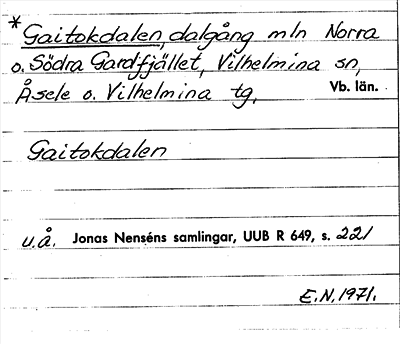 * Gaitokdalen, dalgång mln Norra
o. Södra Gardfjället, Vilhelmina sn,
Åsele o. Vilhelmina tg, Vb. län.
Gaitokdalen
u.å. Jonas Nenséns samlingar, UUB R 649, s. 221
E.N. 1971.